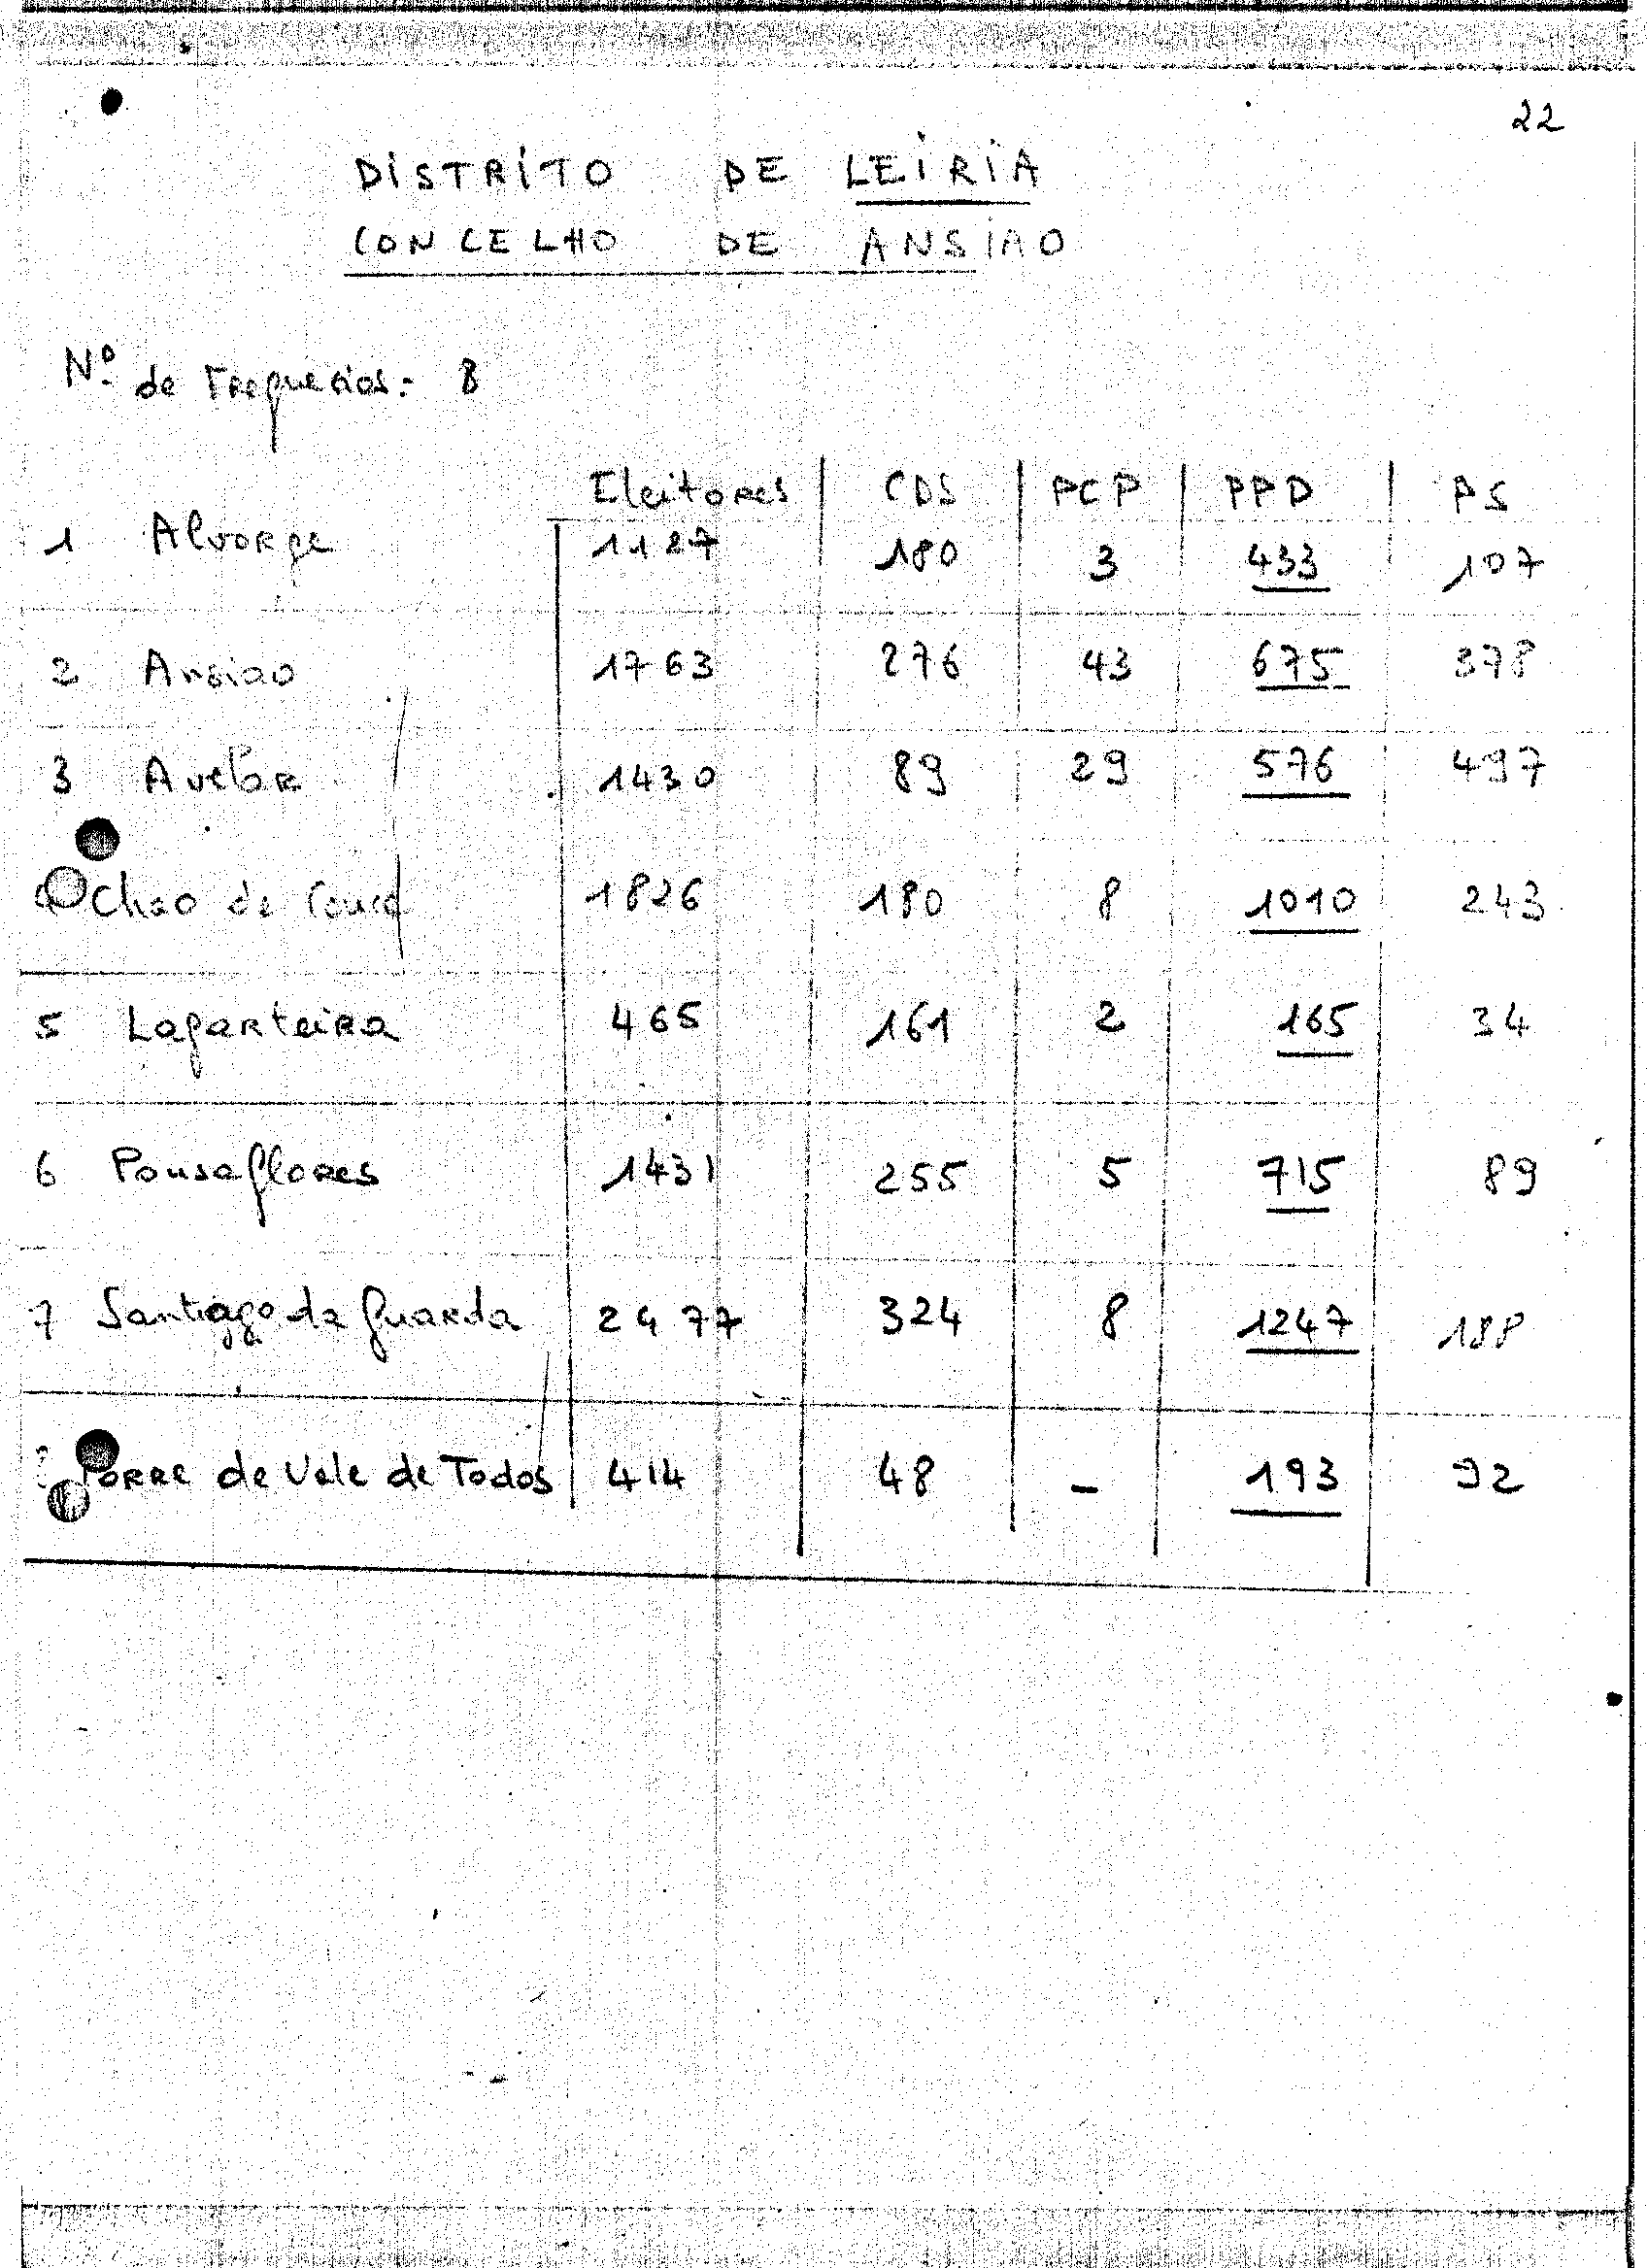 22
DISTRITO DE LEIRIA
CONCELHO DE ANSIAO
Nº de Freguesias: 8
Eleitores CDS PCP PPD PS
1 Alvorge 1127 180 3 433 107
2 Ansiao 1763 276 43 675 378
3 Avelar 1430 89 29 576 497
Chao de Couce 1826 180 8 1010 243
5 Lagarteira 465 161 2 165 34
6 Pousaflores 1431 255 5 715 89
7 Santiago da Guarda 2477 324 8 1247 188
Torre de Vale de Todos 414 48 - 193 92